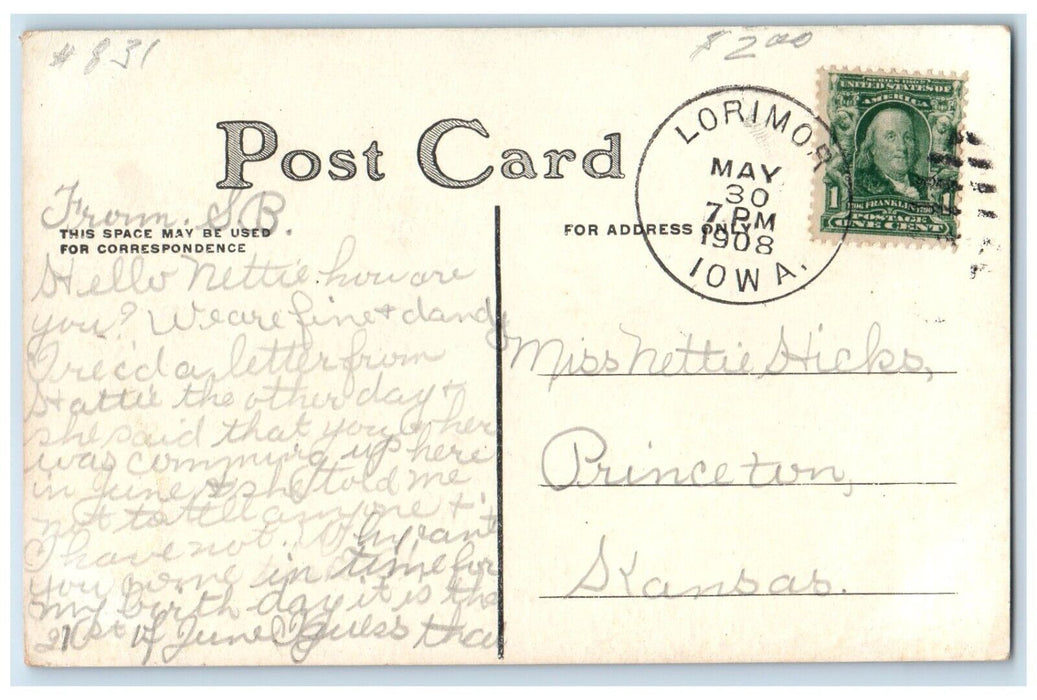 # 831
$2.00
Post Card
From. S.B.
THIS SPACE MAY BE USED
FOR CORRESPONDENCE
FOR ADDRESS ONLY
LORIMOR
MAY
30
7 PM
1908
IOWA.
SERIES 1902
UNITED STATES OF
AMERICA
1 FRANKLIN 1
POSTAGE
ONE CENT
Hello Nettie how are
you? We are fine & dandy
I rec'd a letter from
Hattie the other day &
she said that you & her
was comming up here
in June & she told me
not to tell anyone &
I have not. Why can't
you come in time for
my birth day it is the
21st of June I guess that
Miss Nettie Hicks,
Princeton,
Kansas.